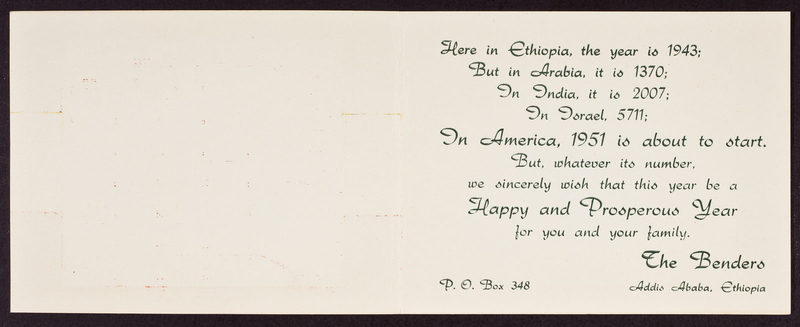 Here in Ethiopia, the year is 1943;
But in Arabia, it is 1370;
In India, it is 2007;
In Israel, 5711;
In America, 1951 is about to start.
But, whatever its number,
we sincerely wish that this year be a
Happy and Prosperous Year
for you and your family.
The Benders
P. O. Box 348
Addis Ababa, Ethiopia